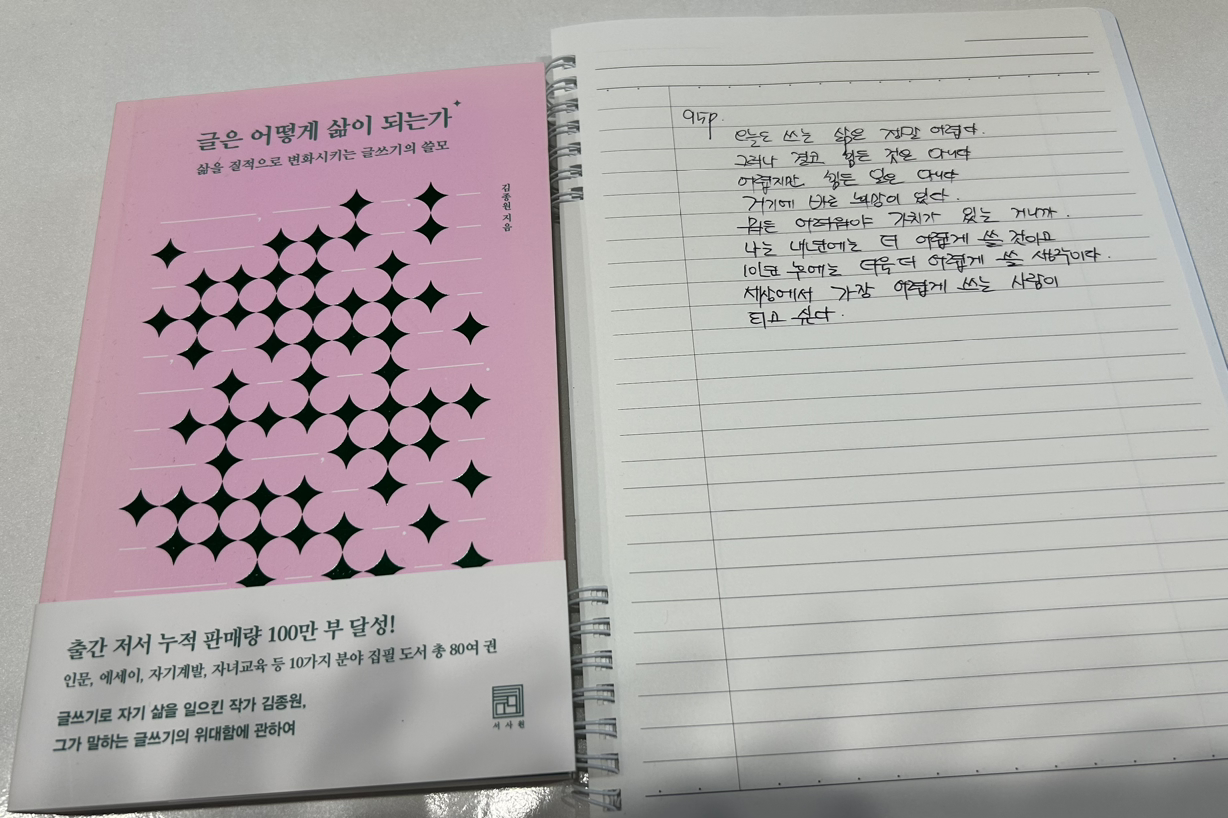 글은 어떻게 삶이 되는가
삶을 질적으로 변화시키는 글쓰기의 쓸모
김종원 지음
출간 저서 누적 판매량 100만 부 달성!
인문, 에세이, 자기계발, 자녀교육 등 10가지 분야 집필 도서 총 80여 권
글쓰기로 자기 삶을 일으킨 작가 김종원,
그가 말하는 글쓰기의 위대함에 관하여
서사원
95p.
오늘도 쓰는 삶은 정말 어렵다.
그러나 결코 힘든 것은 아니다
어렵지만 힘든 일은 아니다
거기에 바로 희망이 있다.
뭐든 어려워야 가치가 있는 거니까.
나는 내년에는 더 어렵게 쓸 것이고
10년 후에는 더욱더 어렵게 쓸 생각이다.
세상에서 가장 어렵게 쓰는 사람이
되고 싶다.